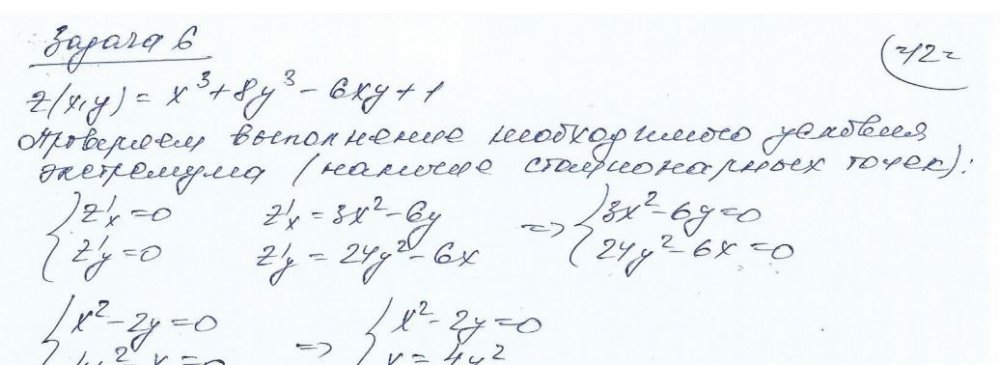 Задача 6
-12-
z(x,y) = x³+8y³-6xy+1
Проверяем выполнение необходимого условия
экстремума (наличие стационарных точек):
{z'x=0 z'x=3x²-6y => {3x²-6y=0
{z'y=0 z'y=24y²-6x {24y²-6x=0
{x²-2y=0 => {x²-2y=0
{4y²-x=0 {x=4y²